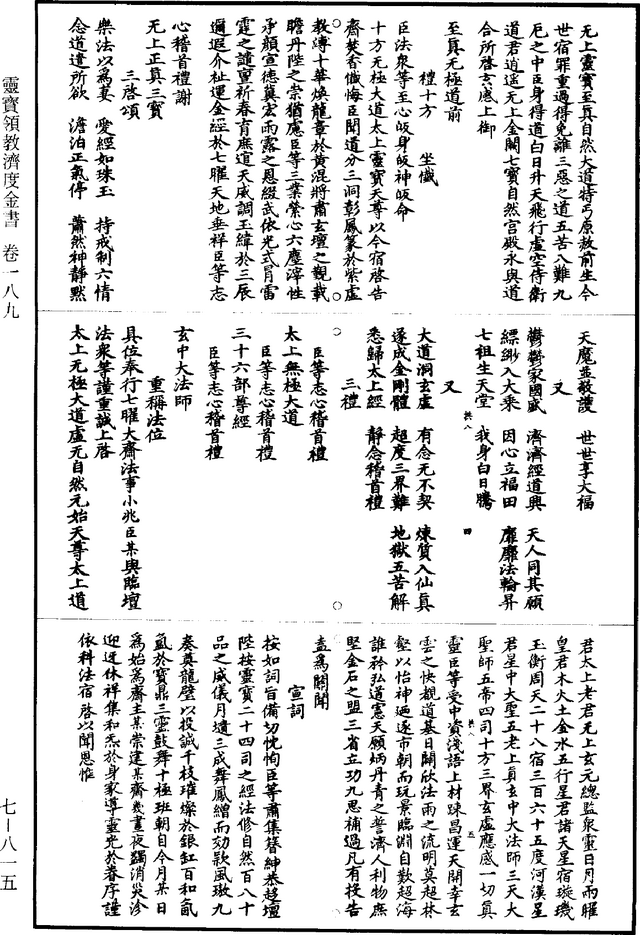 靈寶領教濟度金書 卷一八九
七—八一五
无上靈寶至真自然大道特丐原赦前生今
世宿罪重過得免離三惡之道五苦八難九
厄之中臣身得道白日升天飛行虛空侍衛
道君逍遥无上金闕七寶自然宮殿永與道
合所啓玄感上御
至真无極道前
禮十方 坐懺
臣法衆等至心皈身皈神皈命
十方无極大道太上靈寶天尊以今宿啓告
齋焚香懺悔臣聞道分三洞彰鳳篆於紫虛
教溥十華煥龍章於黄混將肅玄壇之觀載
瞻丹陛之崇猶慮臣等三業縈心六塵滓性
承顏宣德冀宏雨露之恩綴武依光式冐雷
霆之譴亶祈春育庶道天威調玉緯於三辰
遹遐介祉運金經於七曜天地垂祥臣等志
心稽首禮謝
无上正真三寶
三啓頌
樂法以爲妻 愛經如珠玉 持戒制六情
念道遣所欲 澹泊正氣停 蕭然神靜默
天魔並敬護 世世享大福
又
鬱鬱家國盛 濟濟經道興 天人同其願
縹緲入大乘 因心立福田 靡靡法輪昇
七祖生天堂 我身白日騰
又
大道洞玄虛 有念无不契 煉質入仙真
遂成金剛體 超度三界難 地獄五苦解
悉歸太上經 靜念稽首禮
三禮
臣等志心稽首禮
太上無極大道
臣等志心稽首禮
三十六部尊經
臣等志心稽首禮
玄中大法師
重稱法位
具位奉行七曜大齋法事小兆臣某與臨壇
法衆等謹重誠上啓
太上无極大道虛元自然元始天尊太上道
君太上老君无上玄元總監衆靈日月兩曜
皇君木火土金水五行星君諸天星宿璇璣
玉衡周天二十八宿三百六十五度河漢星
君星中大聖五老上真玄中大法師三天大
聖師五帝四司十方三界玄虛應感一切真
靈臣等受中資淺語上材踈昌運天開幸玄
雲之快覩道基日闢欣法雨之流明莫超林
壑以怡神迺逐市朝而玩景臨淵自歎超海
誰矜弘道憲天願炳丹青之誓濟人利物庶
堅金石之盟三省立功九思補過凡有投告
盍爲關聞
宣詞
按如詞旨備切忱恂臣等肅集簪紳恭趍壇
陛按靈寶二十四司之經法修自然百八十
品之威儀月壝三成舞鳳繒而効款風璈九
奏奠龍璧以投誠千枝璀燦於銀釭百和氤
氳於寶鼎三靈鼓舞十極班朝自今月某日
爲始爲齋主某崇建某齋幾晝夜蠲消災沴
迎迓休祥集和炁於身家導靈光於眷序謹
依科法宿啓以聞恩惟